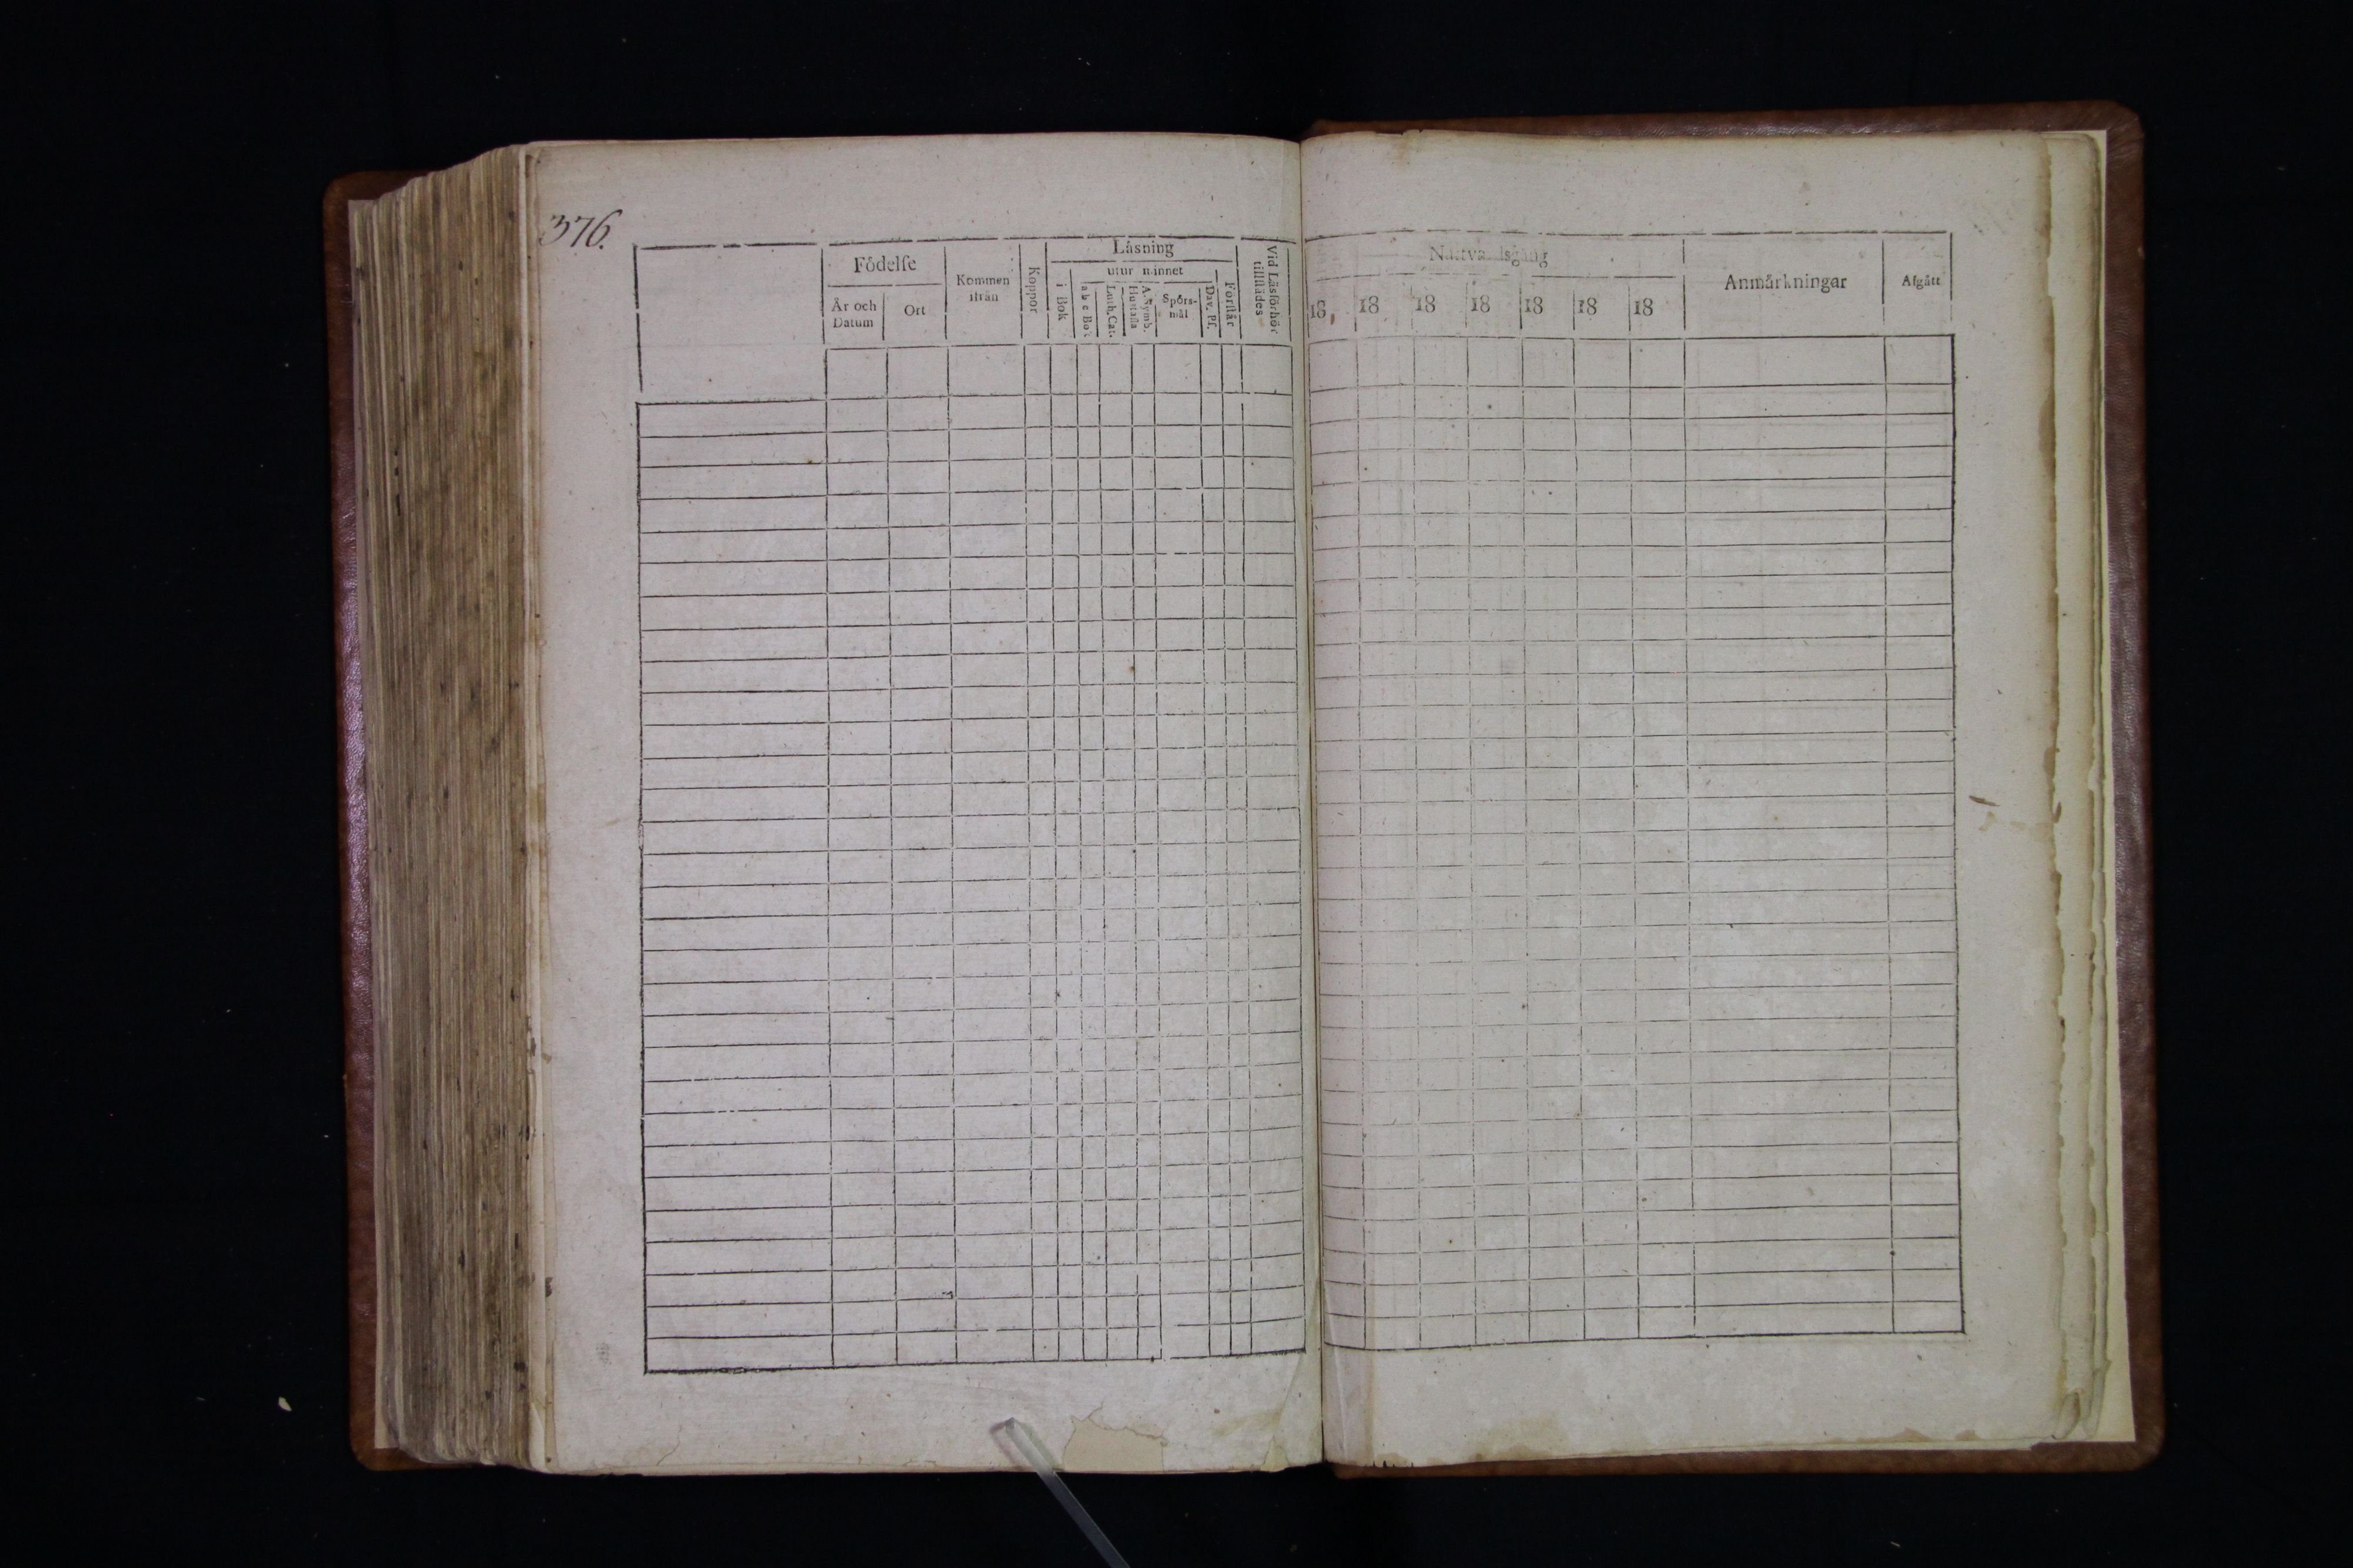 376.
Födelse
År och Datum
Ort
Kommen ifrån
Koppor
Läsning
utur minnet
i Bok
Luth. Cat.
Hustafla
A. Symb.
Spörsmål
Dav. Ps.
Förstår
Vid Läsförhör tillstädes
Nattvardsgång
18, 18 18 18 18 18 18
Anmärkningar
Afgått